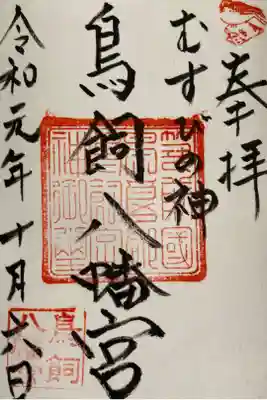 奉拝
むすびの神
鳥飼八幡宮
令和元年十月六日
鳥飼
八幡宮